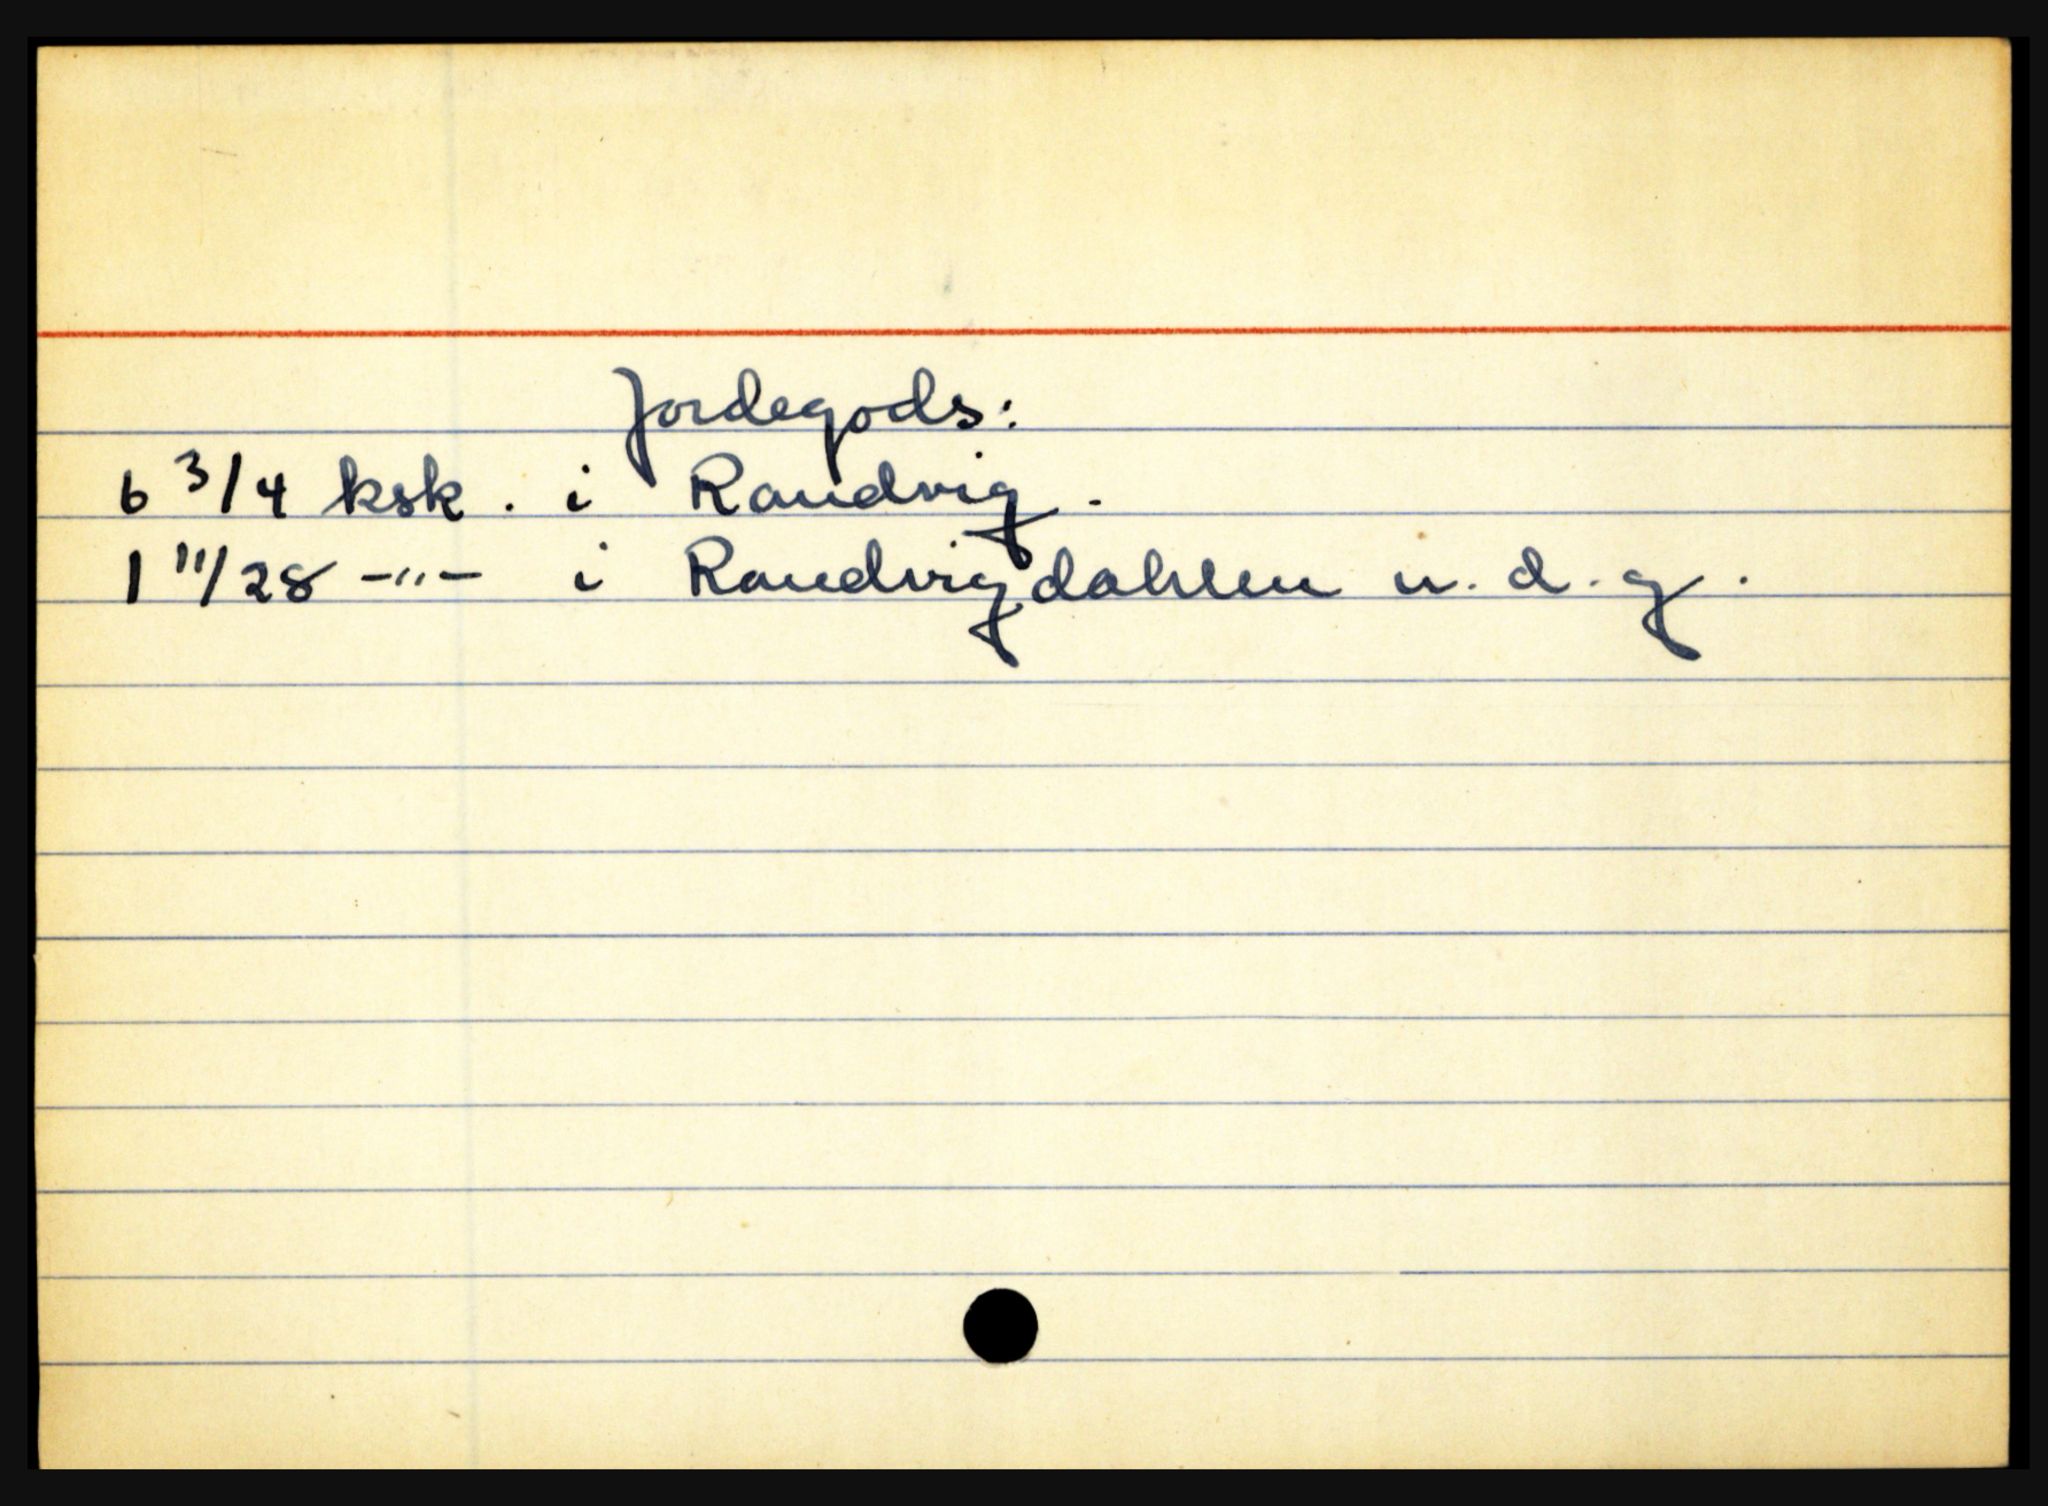 Jordegods:
6 3/4 ksk. i Randvig.
1 11/28 -"- i Randvigdahlen n. d. g.